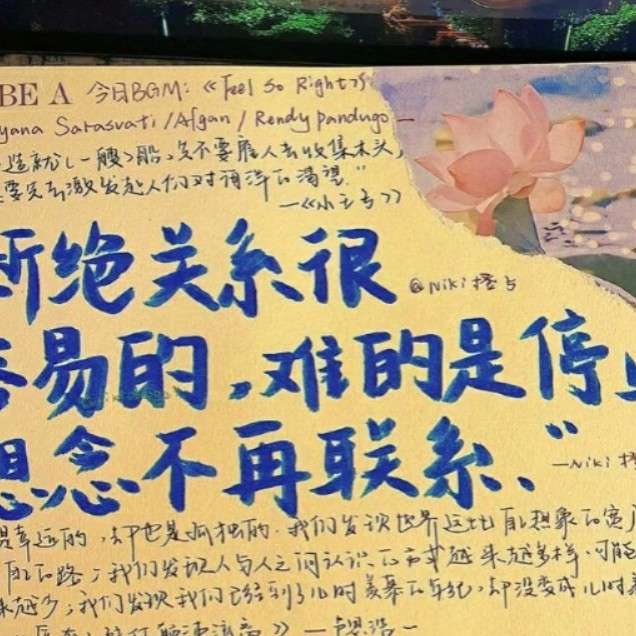 BE A 今日BGM:《Feel So Right》
yana Sarasvati/Afgan/Rendy Pandugo一
造就一艘船,先不要雇人去收集木头,
要先去激发起人们对海洋的渴望."
—《小王子》
断绝关系很
@Niki
容易的,难的是停止
想念不再联系、"
—Niki
是幸运的,却也是孤独的.我们发识世界远比自己想象的宽广
自己的路;我们发现人与人之间认识的方式越来越多样,可能
来越多;我们发识我们已经到了儿时羡慕的年纪,却没变成儿时羡
—卢思浩—